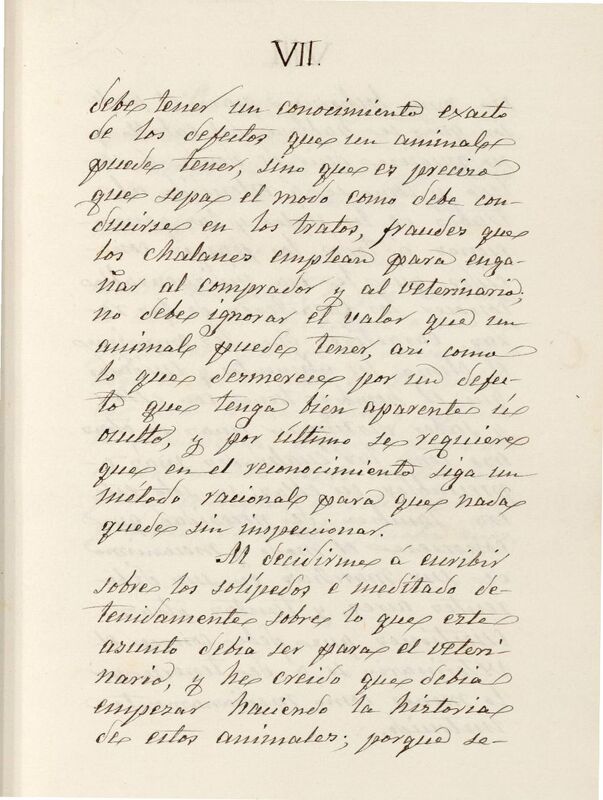 VII.
debe tener un conocimiento exacto
de los defectos que un animal
puede tener, sino que es preciso
que sepa el modo como debe con-
ducirse en los tratos, fraudes que
los chalanes emplean para enga-
ñar al comprador y al veterinario,
no debe ignorar el valor que un
animal puede tener, asi como
lo que desmerece por un defec-
to que tenga bien aparente ú
oculto, y por último se requiere
que en el reconocimiento siga un
método racional para que nada
quede sin inspeccionar.
Al decidirme á escribir
sobre los solípedos e meditado de-
tenidamente sobre lo que este
asunto debia ser para el veteri-
nario, y he creido que debia
empezar haciendo la historia
de estos animales; porque se-